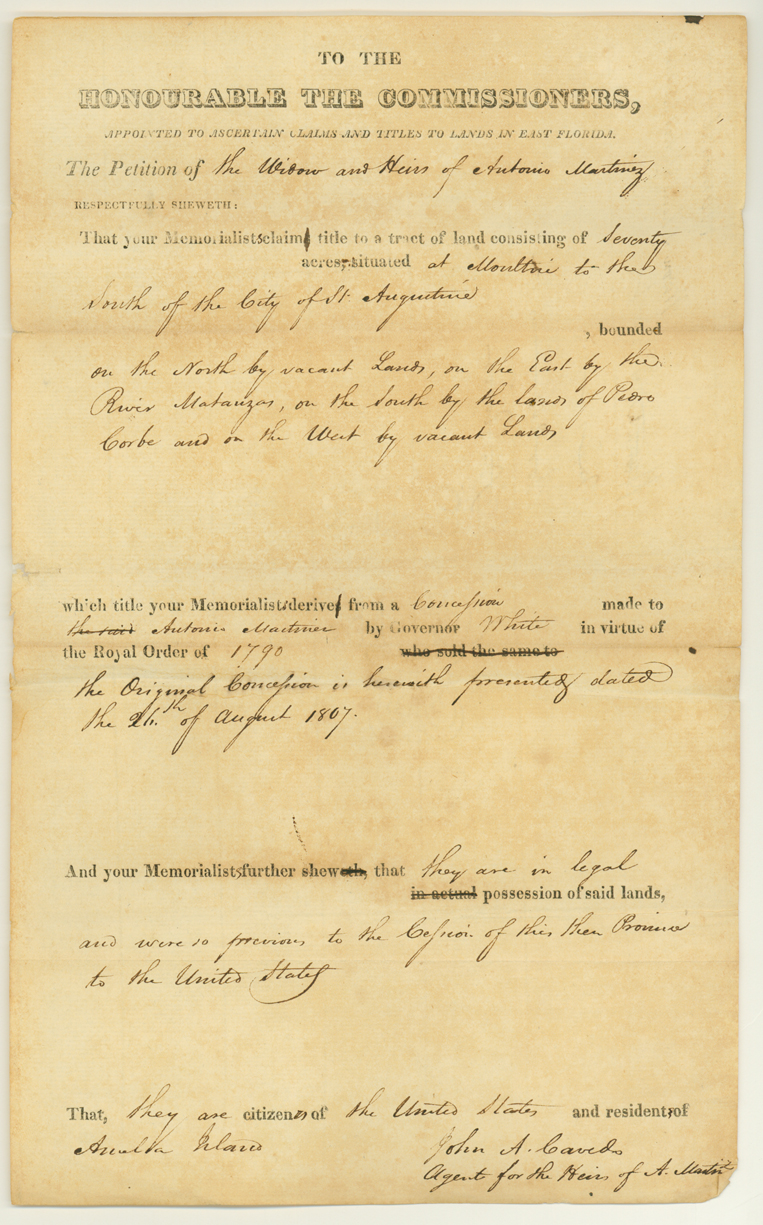 TO THE
HONOURABLE THE COMMISSIONERS,
APPOINTED TO ASCERTAIN CLAIMS AND TITLES TO LANDS IN EAST FLORIDA.
The Petition of the Widow and Heirs of Antonio Martinez
RESPECTFULLY SHEWETH:
That your Memorialists claim title to a tract of land consisting of Seventy
acres, situated at Moultrie to the
South of the City of St. Augustine
, bounded
on the North by vacant Lands, on the East by the
River Matanzas, on the South by the lands of Pedro
Corbe and on the West by vacant Lands
which title your Memorialists derive from a Concession made to
the said Antonio Martinez by Governor White in virtue of
the Royal Order of 1790 who sold the same to
the Original Concession is herewith presented dated
the 26.th of August 1807.
And your Memorialists further sheweth, that they are in legal
in actual possession of said lands,
and were so previous to the Cession of this then Province
to the United States
That, they are citizens of the United States and residents of
Amelia Island John A. Cavedo
Agent for the Heirs of A. Martin